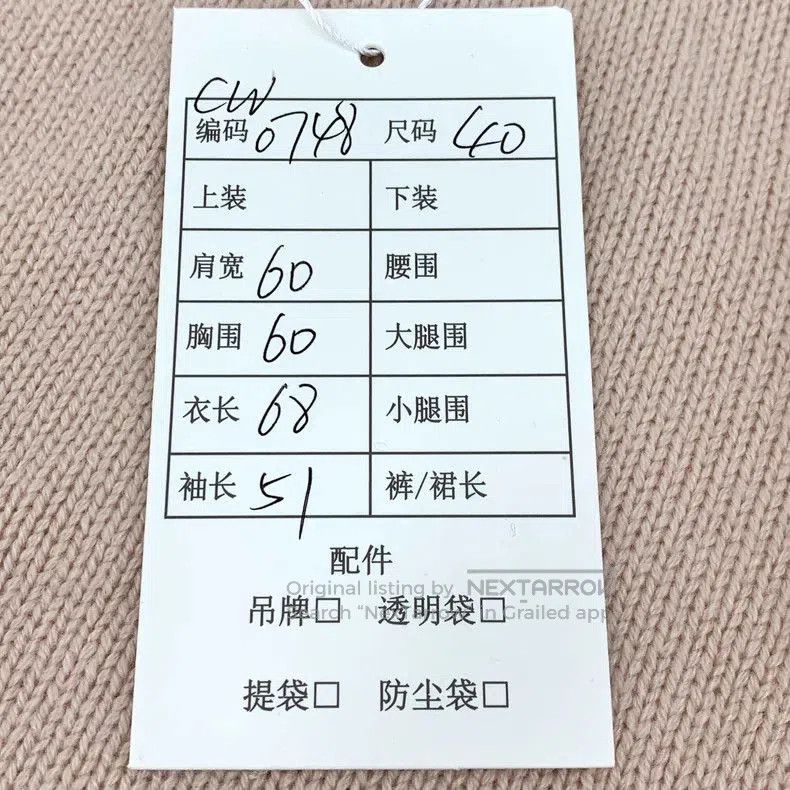 CW
编码 0748 尺码 40
上装 下装
肩宽 60 腰围
胸围 60 大腿围
衣长 68 小腿围
袖长 51 裤/裙长
配件
Original listing by NEXTARROW
吊牌□ 透明袋□
Search "NextArrow" in Grailed app
提袋□ 防尘袋□